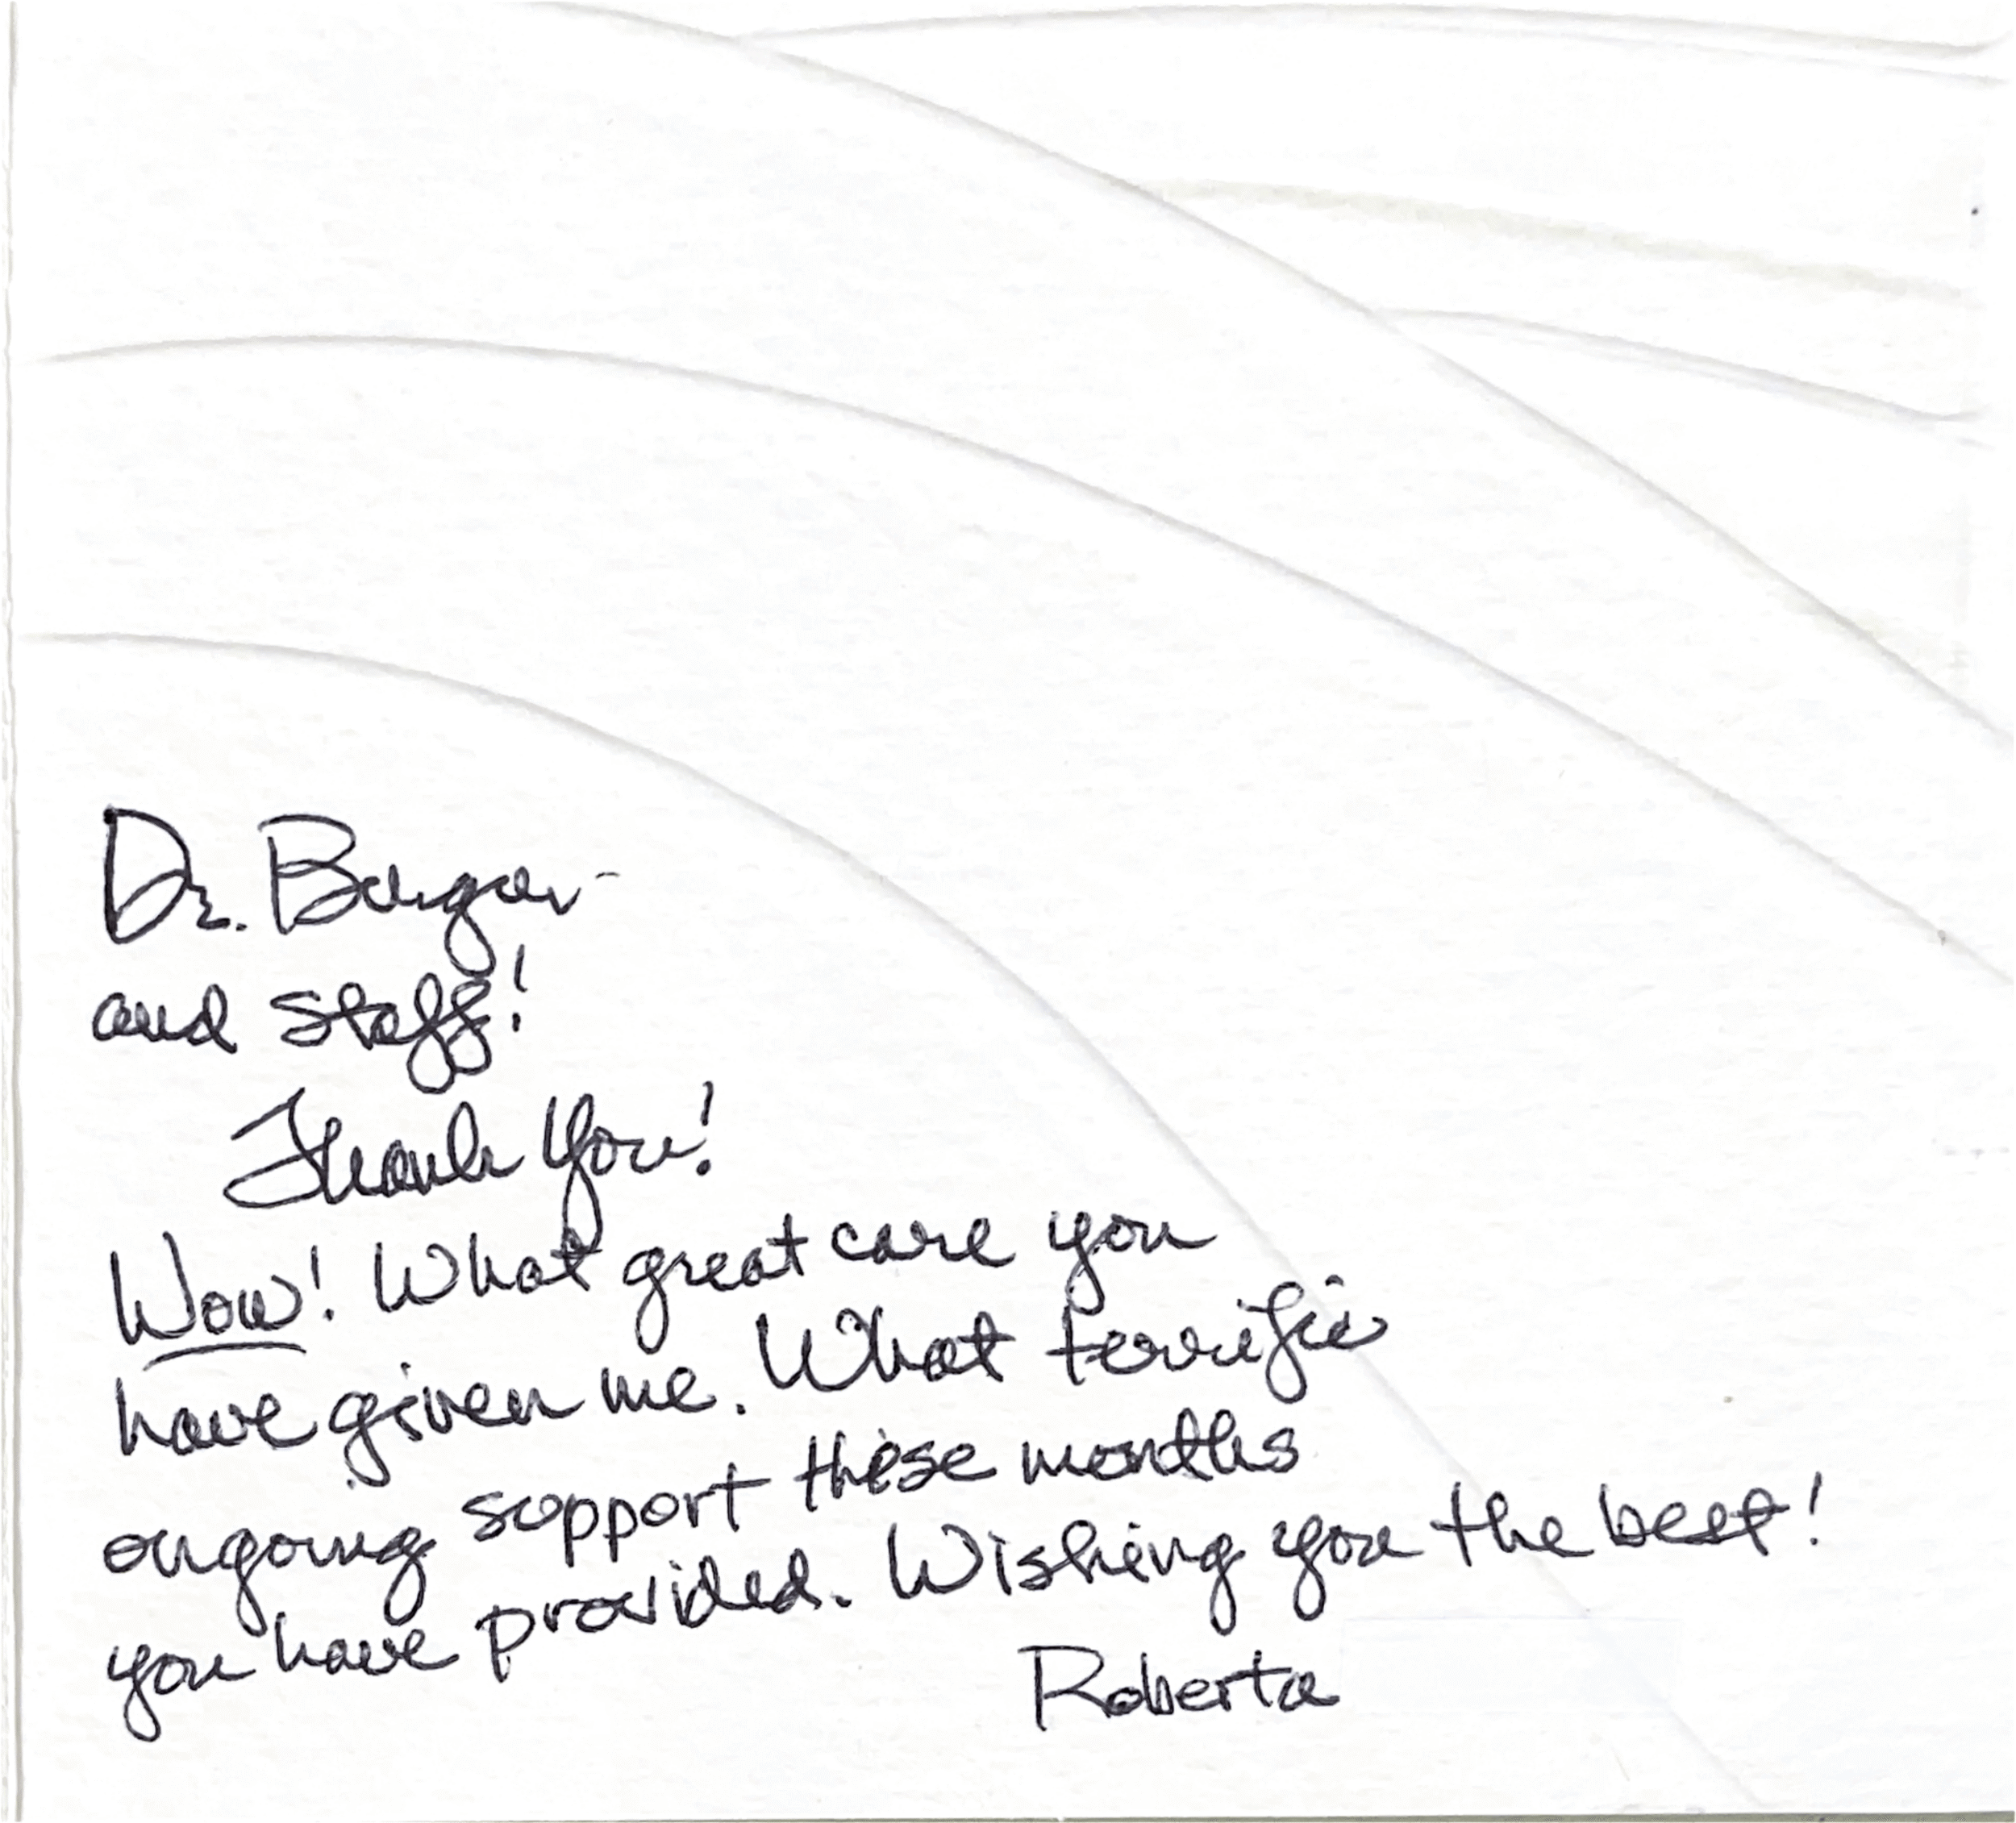 Dr. Bargar-
and staff!
Thank You!
Wow! What great care you
have given me. What terrific
ongoing support these months
you have provided. Wishing you the best!
Roberta